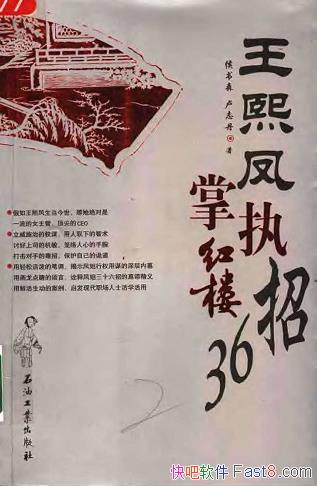 77
王熙凤执
掌红楼
36招
侯书森 卢志丹 ◎ 著
●假如王熙凤生当今世,那她绝对是
一流的女主管、顶尖的CEO
●立威施治的权谋,用人取下的智术
讨好上司的机敏,笼络人心的手腕
打击对手的毒招,保护自己的遁道
●用轻松活泼的笔调,揭示凤姐行权用谋的深层内幕
用画龙点睛的箴言,诠释凤姐三十六招的真谛精义
用鲜活生动的案例,启发现代职场人士活学活用
石油工业出版社
2
快吧软件 Fast8.com